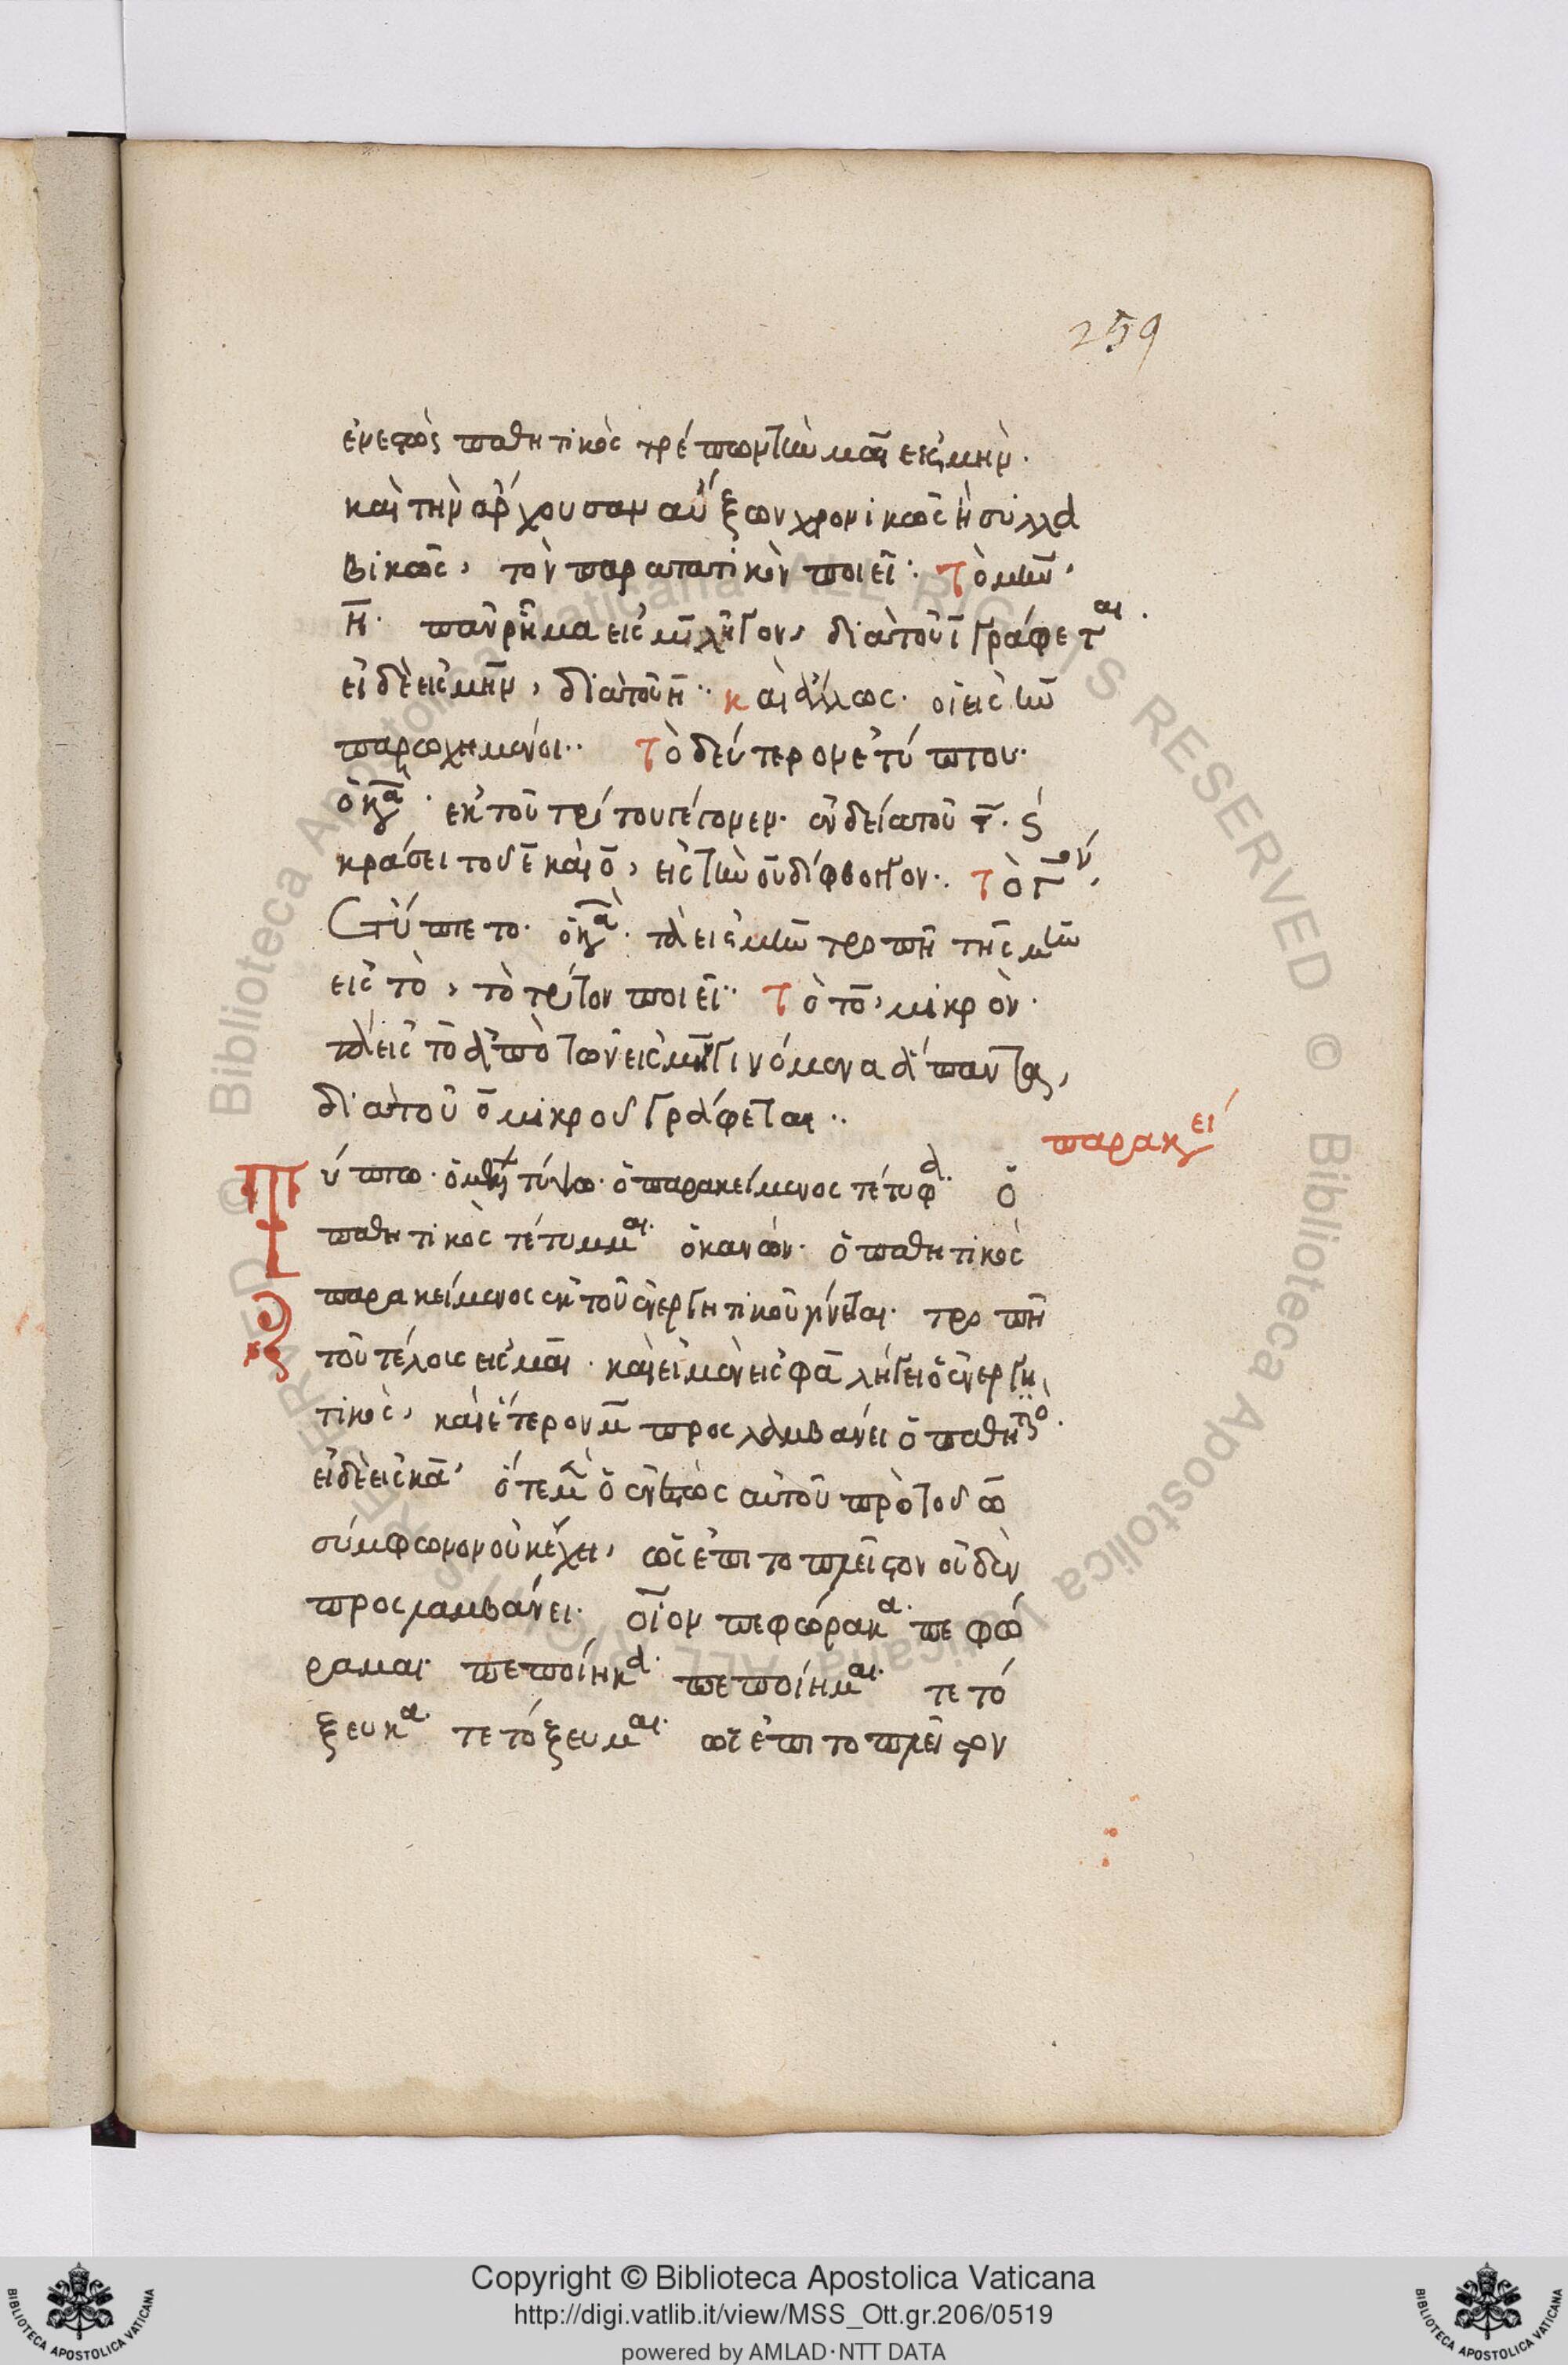 259
ἐνεστὼς παθητικὸς τρέπων τὴν μαι εἰς μην.
καὶ τὴν ἄρχουσαν αὔξων χρονικῶς ἢ συλλα
βικῶς, τὸν παρατατικὸν ποιεῖ. Τὸ μην,
η. πᾶν ῥῆμα εἰς μι λῆγον, διὰ τοῦ ι γράφεται.
εἰ δὲ εἰς μην, διὰ τοῦ η. καὶ ἄλλως. οἱ εἰς ην
παρῳχημένοι. Τὸ δεύτερον ἐτύπτου.
ὁ κα. ἐκ τοῦ τρίτου γέγονεν. ἐνδείᾳ τοῦ τ. ς
κράσει τοῦ ε καὶ ο, εἰς τὴν ου δίφθογγον. Τὸ γον,
ἐτύπτετο. ὁ κα. τὰ εἰς μην τροπῇ τῆς μην
εἰς το, τὸ τρίτον ποιεῖ. Τὸ το, μικρόν.
τὰ εἰς το ἀπὸ τῶν εἰς μην γινόμενα ἅπαντα,
διὰ τοῦ ο μικροῦ γράφεται.
παρακει
Τύπτω. ὁ μέλλων τύψω. ὁ παρακείμενος τέτυφα. ὁ
παθητικὸς τέτυμμαι. ὁ κανών. ὁ παθητικὸς
παρακείμενος ἐκ τοῦ ἐνεργητικοῦ γίνεται. τροπῇ
τοῦ τέλους εἰς μαι. καὶ εἰ μὲν εἰς φα λήγει ὁ ἐνεργη
τικός, καὶ ἕτερον μ προσλαμβάνει ὁ παθητικὸ.
εἰ δὲ εἰς κα, ὅτε μὲν ὁ ἐνεστὼς αὐτοῦ πρὸ τοῦ ω
σύμφωνον οὐκ ἔχει, ὡς ἐπὶ τὸ πλεῖστον οὐδὲν
προσλαμβάνει. οἷον πεφώρακα. πεφώ
ραμαι. πεποίηκα. πεποίημαι. τετό
ξευκα. τετόξευμαι. ὡς ἐπὶ τὸ πλεῖστον
Copyright © Biblioteca Apostolica Vaticana
http://digi.vatlib.it/view/MSS_Ott.gr.206/0519
powered by AMLAD·NTT DATA
BIBLIOTECA APOSTOLICA VATICANA
BIBLIOTECA APOSTOLICA VATICANA